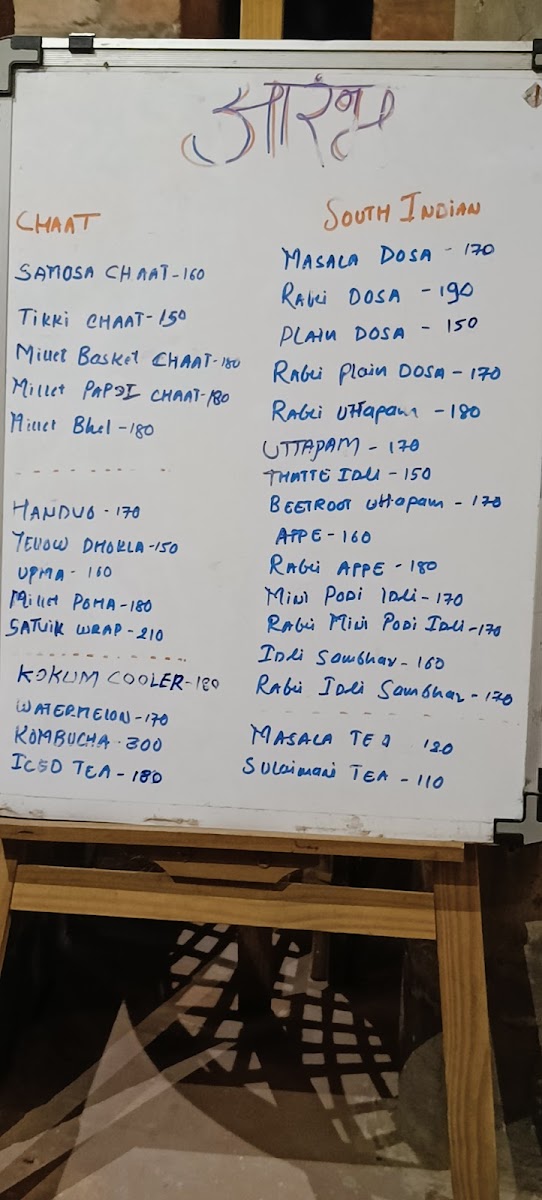 आरंभ
CHAAT
SAMOSA CHAAT-160
TIKKI CHAAT-150
Millet Basket CHAAT-180
Millet PAPDI CHAAT-180
Millet Bhel-180
HANDVO-170
YELLOW DHOKLA-150
UPMA-160
Millet POHA-180
SATVIK WRAP-210
KOKUM COOLER-180
WATERMELON-170
KOMBUCHA-300
ICED TEA-180
SOUTH INDIAN
MASALA DOSA-170
RAGLI DOSA-190
PLAIN DOSA-150
RAGLI Plain DOSA-170
RAGLI Uttapam-180
UTTAPAM-170
THATTE IDLI-150
BEETROOT Uttapam-170
APPE-160
RAGLI APPE-180
Mini PODI IDLI-170
RAGLI Mini Podi IDLI-170
IDLI Sambhar-160
RAGLI IDLI Sambhar-170
MASALA TEA 120
Sulaimani TEA-110